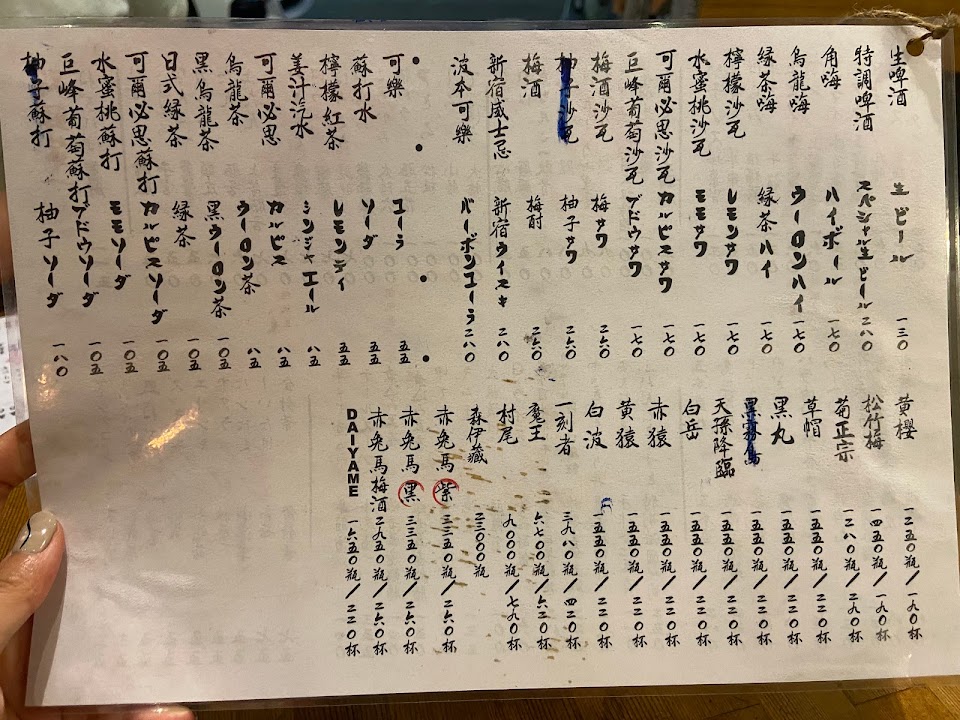 生啤酒 生ビール 一三〇
特調啤酒 スペシャル生ビール 二八〇
角嗨 ハイボール 一七〇
烏龍嗨 ウーロンハイ 一七〇
綠茶嗨 緑茶ハイ 一七〇
檸檬沙瓦 レモンサワ 一七〇
水蜜桃沙瓦 モモサワ 一七〇
可爾必思沙瓦 カルピスサワ 一七〇
巨峰葡萄沙瓦 ブドウサワ 一七〇
梅酒沙瓦 梅サワ 二六〇
柚子沙瓦 柚子サワ 二六〇
梅酒 梅酎 二六〇
新宿威士忌 新宿ウイスキ 二八〇
波本可樂 バーボンコーラ 二八〇
可樂 コーラ 五五
蘇打水 ソーダ 五五
檸檬紅茶 レモンティ 五五
姜汁汽水 ジンジャエール 八五
可爾必思 カルピス 八五
烏龍茶 ウーロン茶 八五
黑烏龍茶 黒ウーロン茶 一〇五
日式緑茶 緑茶 一〇五
可爾必思蘇打 カルピスソーダ 一〇五
水蜜桃蘇打 モモソーダ 一〇五
巨峰葡萄蘇打 ブドウソーダ 一〇五
柚子蘇打 柚子ソーダ 一八〇
黄櫻 一二五〇瓶/一九〇杯
松竹梅 一四五〇瓶/一九〇杯
菊正宗 一二八〇瓶/二九〇杯
草帽 一五五〇瓶/二二〇杯
黑丸 一五五〇瓶/二二〇杯
黑霧島 一五五〇瓶/二二〇杯
天孫降臨 一五五〇瓶/二二〇杯
白岳 一五五〇瓶/二二〇杯
赤猿 一五五〇瓶/二二〇杯
黄猿 一五五〇瓶/二二〇杯
白波 一五五〇瓶/二二〇杯
一刻者 三九八〇瓶/四二〇杯
魔王 六七〇〇瓶/六二〇杯
村尾 九〇〇〇瓶/七九〇杯
森伊藏 二三〇〇〇瓶
赤兔馬紫 三三五〇瓶/二六〇杯
赤兔馬黑 三三五〇瓶/二六〇杯
赤兔馬梅酒 二九五〇瓶/二六〇杯
DAIYAME 一六五〇瓶/二二〇杯